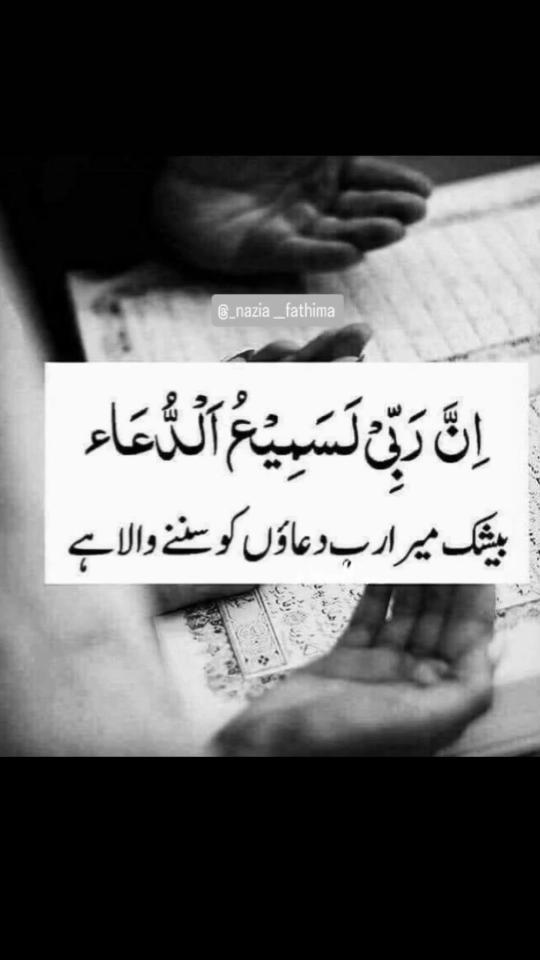 @_nazia __fathima
اِنَّ رَبِّىْ لَسَمِيْعُ اَلْدُّعَاء
بیشک میرا رب دعاؤں کو سننے والا ہے